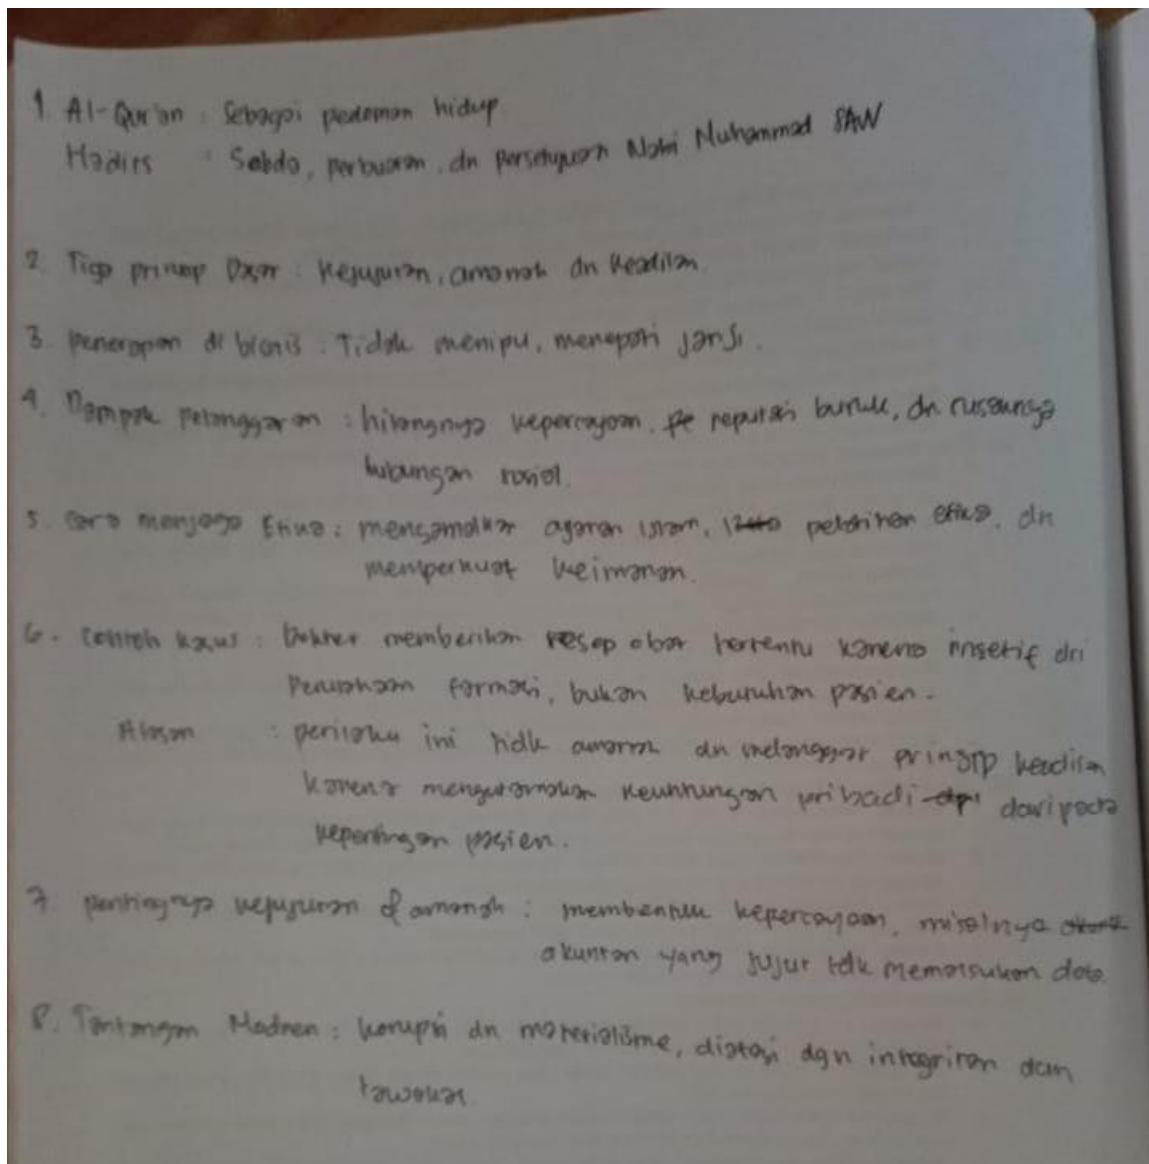 1. Al-Qur'an : Sebagai pedoman hidup.
Hadits : Sabda, perbuatan, dn persetujuan Nabi Muhammad SAW
2. Tiga prinsip Dasar : Kejujuran, amanah dn keadilan.
3. penerapan di bisnis : Tidak menipu, menepati janji.
4. Dampak pelanggaran : hilangnya kepercayaan, reputasi buruk, dn rusaknya
hubungan sosial.
5. Cara menjaga Etika : mengamalkan ajaran islam, pelatihan etika, dn
memperkuat keimanan.
6. Contoh kasus : Dokter memberikan resep obat tertentu karena insetif dri
Perusahaan farmasi, bukan kebutuhan pasien.
Alasan : perilaku ini tidk amanah dn melanggar prinsip keadilan
karena mengutamakan keuntungan pribadi daripada
kepentingan pasien.
7. pentingnya kejujuran & amanah : membentuk kepercayaan, misalnya
akuntan yang jujur tdk memalsukan data.
8. Tantangan Modren : korupsi dn materialisme, diatasi dgn integritas dan
tawakal